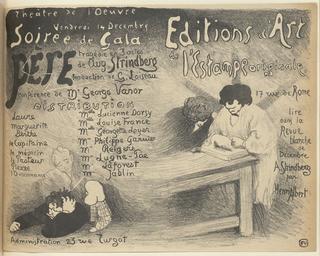 Théâtre de l'Oeuvre
Vendredi 14 Décembre
Soirée de Gala
PÈRE
tragédie en 3 actes
de Aug. Strindberg
traduction de G. Loiseau
Conférence de Mr George Vanor
DISTRIBUTION
Laura
Marguerite
Berthe
Le Capitaine
le médecin
le Pasteur
Pierre
Mmes Lucienne Dorsy
Mme Louise France
Mme Georgette Loyer
Mr Philippe Garnier
Mr Lugné-Poe
Mr Laforest
Mr Jablin
Administration 23 rue Turgot
Editions d'Art
de l'Estampe originale
17 rue de Rome
lire
dans la
Revue
blanche
de
Décembre
A. Strindberg
par
Henri Albert